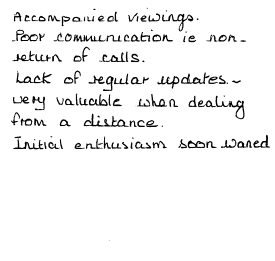 Accompanied viewings.
Poor communication ie non-
return of calls.
Lack of regular updates -
very valuable when dealing
from a distance.
Initial enthusiasm soon waned